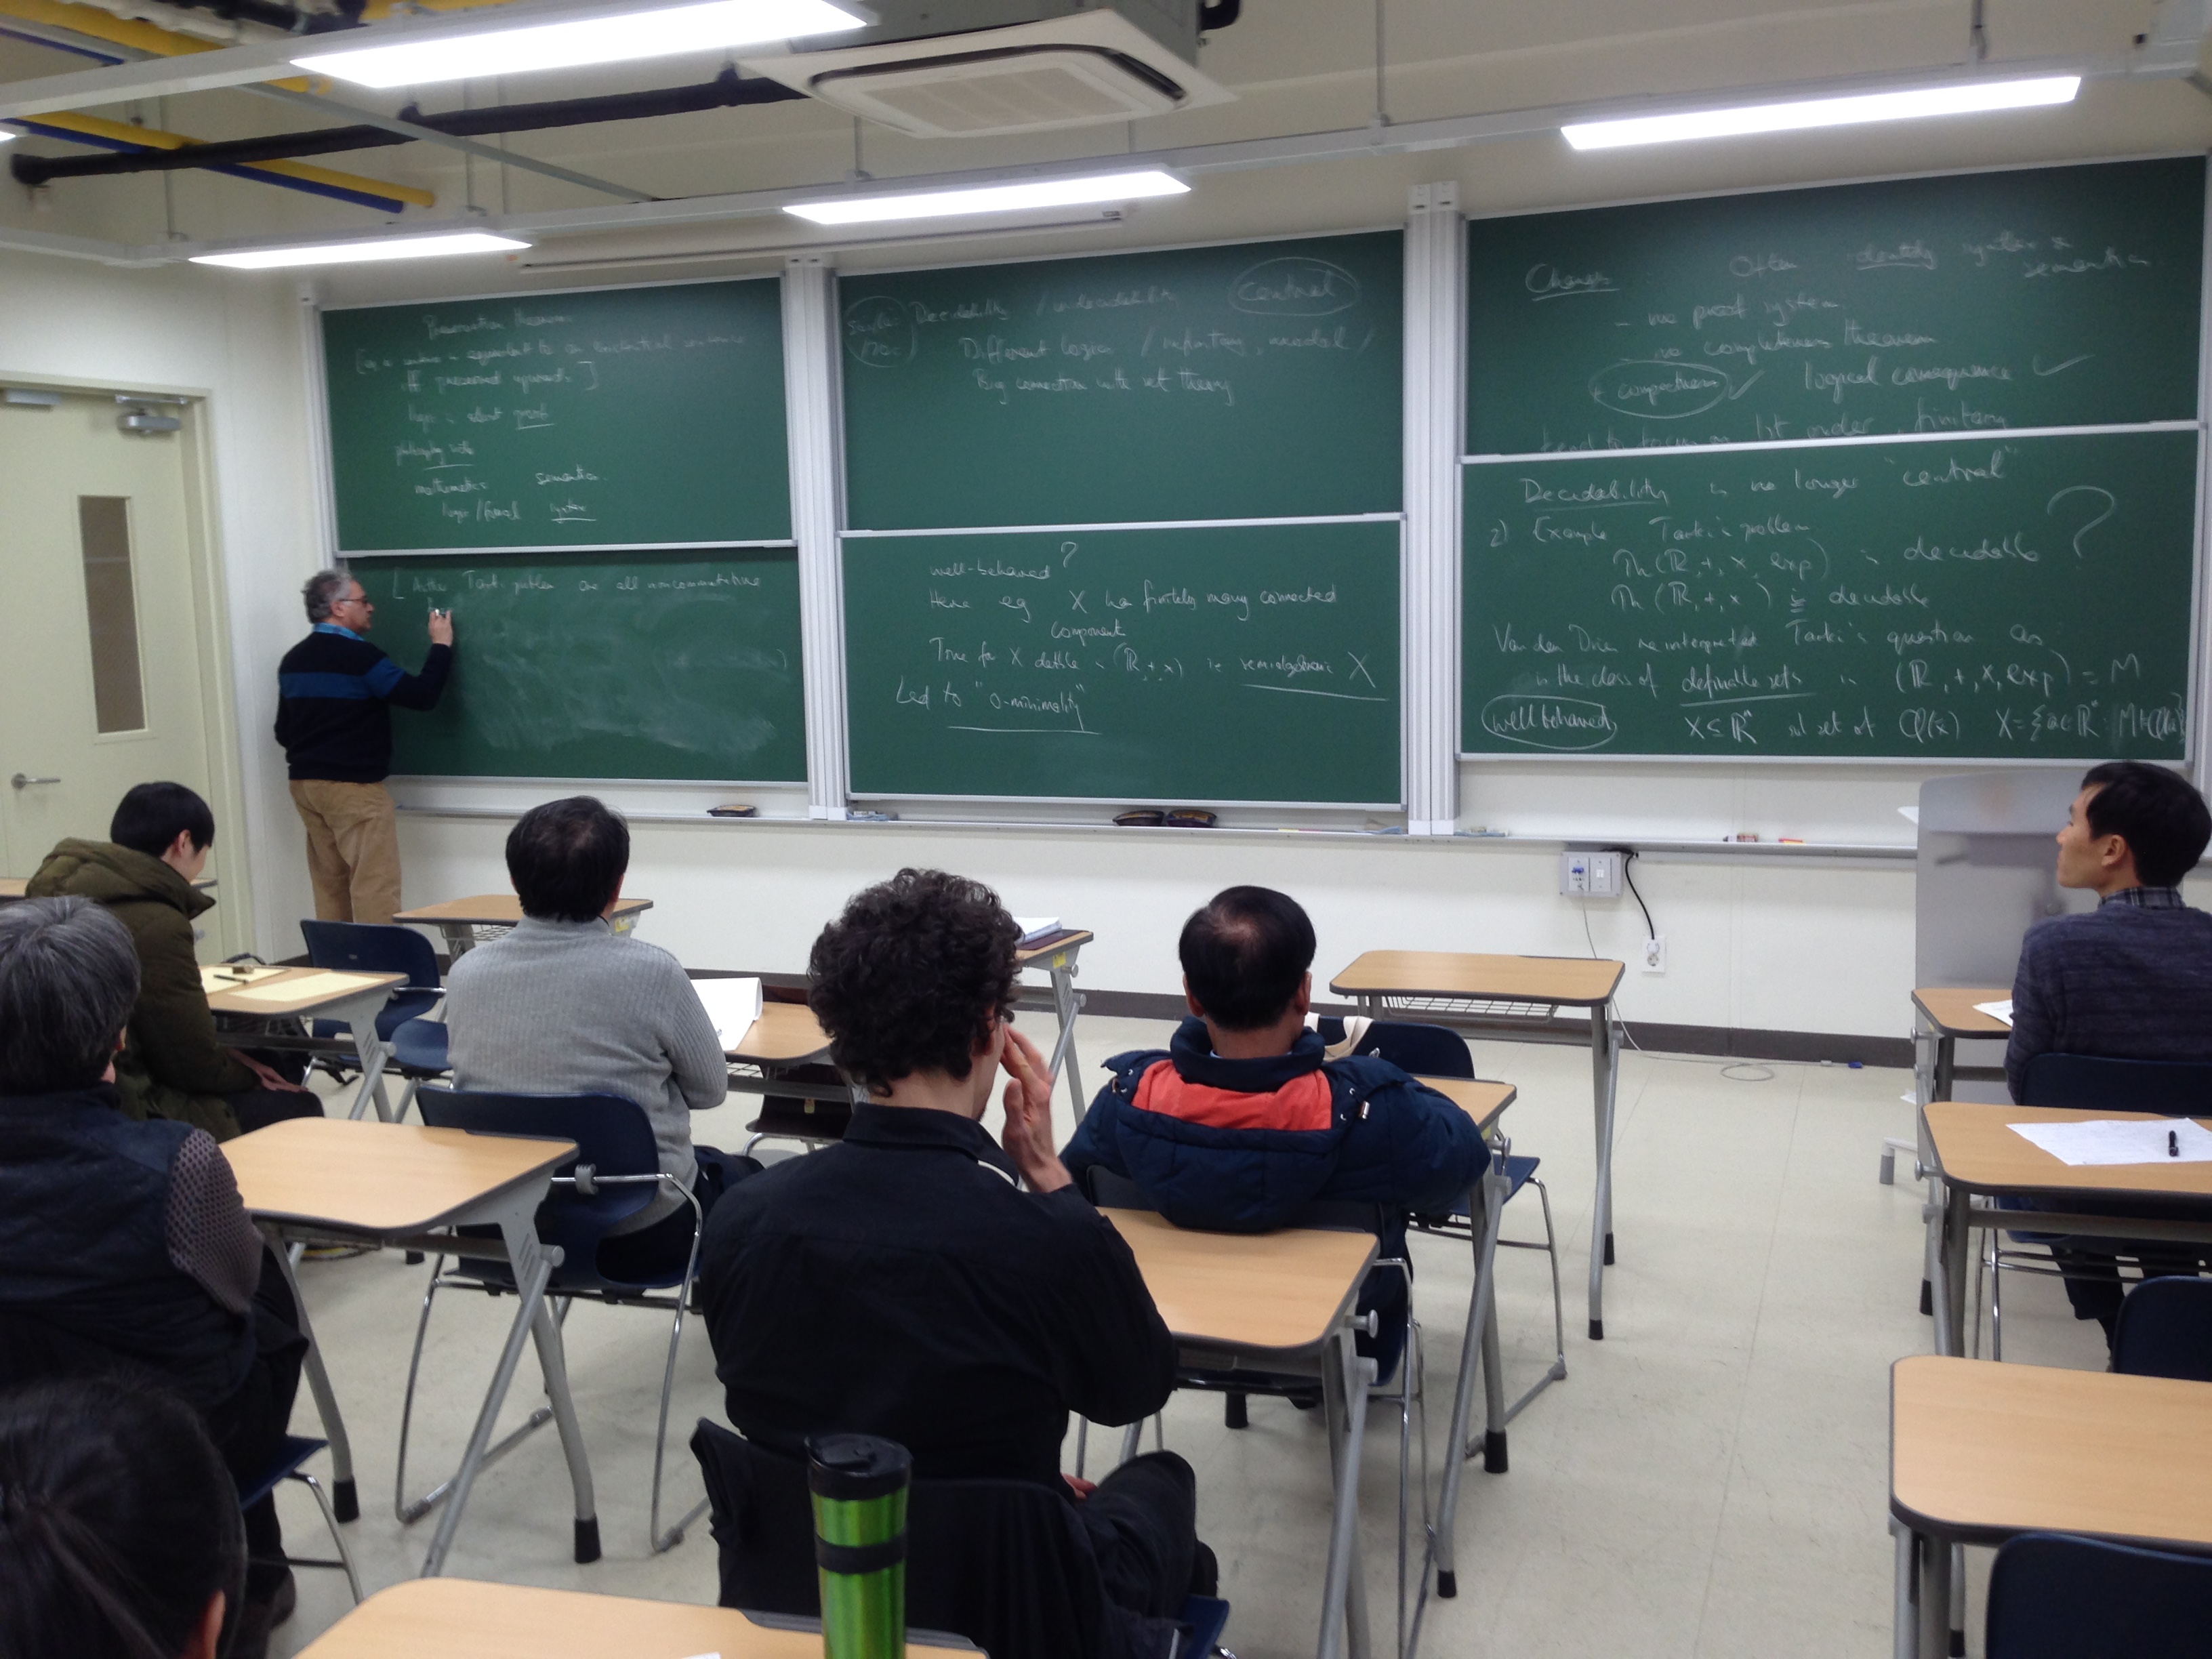 Preservation theorem
[eg a sentence is equivalent to an existential sentence
iff preserved upwards ]
logic is about proof
philosophy
mathematics semantics
logic / formal syntax
[ Another Tarski problem are all noncommutative
Decidability / undecidability central
Different logics / infinitary, modal /
Big connection with set theory
well-behaved ?
Here eg X has finitely many connected
component
True for X defble in (ℝ, +, ×) ie semialgebraic X
Led to "o-minimality"
Changes Often identify syntax &
semantics
- no proof system
no completeness theorem
compactness ✓ logical consequence ✓
tend to focus on 1st order, finitary
Decidability is no longer "central"
2) Example Tarski's problem
Th(ℝ, +, ×, exp) is decidable ?
Th(ℝ, +, ×) is decidable
Van den Dries reinterpreted Tarski's question as
is the class of definable sets in (ℝ, +, ×, exp) = M
well behaved X ⊆ ℝⁿ sol set of φ(x̄) X = {a ∈ ℝⁿ : M ⊨ φ(a)}